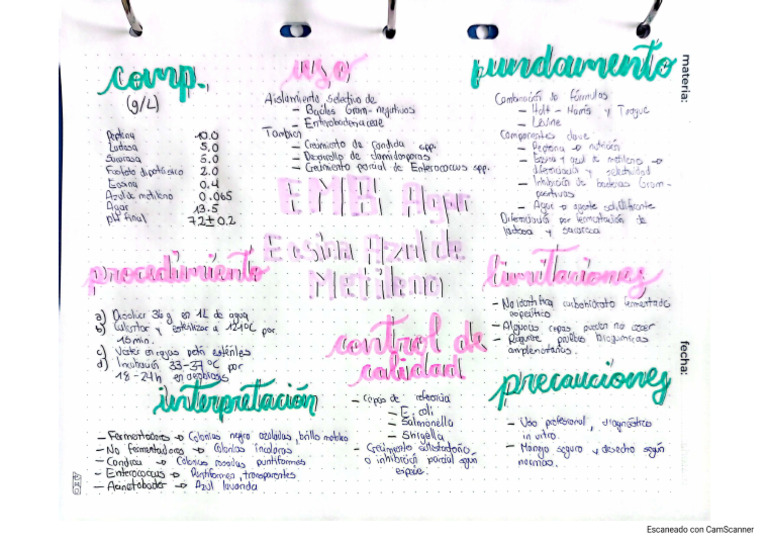 materia:
fecha:
comp.
(g/L)
Peptina 10.0
Lactosa 5.0
Sacarosa 5.0
Fosfato dipotásico 2.0
Eosina 0.4
Azul de metileno 0.065
Agar 13.5
pH final 7.2 ± 0.2
uso
Aislamiento selectivo de
- Bacilos Gram-negativos
- Enterobacteriaceae
También
- Crecimiento de candida spp.
- Desarrollo de clamidosporas
- Crecimiento parcial de Enterococcus spp.
fundamento
Combinación de fórmulas
- Holt - Harris y Teague
- Levine
Componentes clave
- Peptona → nutrición
- Eosina y azul de metileno →
diferenciación y selectividad
- Inhibición de bacterias Gram-
positivas
- Agar →
Diferenciación por fermentación de
lactosa y sacarosa
EMB: Agar
Eosina Azul de
Metileno
procedimiento
a) Disolver 36 g en 1L de agua
b) Calentar y esterilizar a 121°C por
15 min.
c) Verter en cajas petri estériles
d) Incubación 33-37 °C por
18-24h en aerobiosis
limitaciones
- No identifica carbohidrato fermentado
específico
- Algunas cepas pueden no crecer
- Requiere pruebas bioquímicas
control de
calidad
- Cepas de referencia
- E. coli
- Salmonella
- Shigella
- Crecimiento satisfactorio
o inhibición parcial según
especie.
interpretación
- Fermentadores → Colonias negro azuladas, brillo metálico
- No fermentadores → Colonias incoloras
- Candida → Colonias rosadas puntiformes
- Enterococcus → Puntiformes, transparentes
- Acinetobacter → Azul lavanda
precauciones
- Uso profesional, diagnóstico
in vitro.
- Manejo seguro y desecho según
normas.
Escaneado con CamScanner